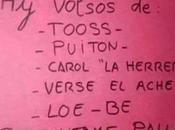 HY VOLSOS DE:
- TOOSS
- PUITON
- CAROL "LA HERREN
- VERSE EL ACHE
- LOE-BE